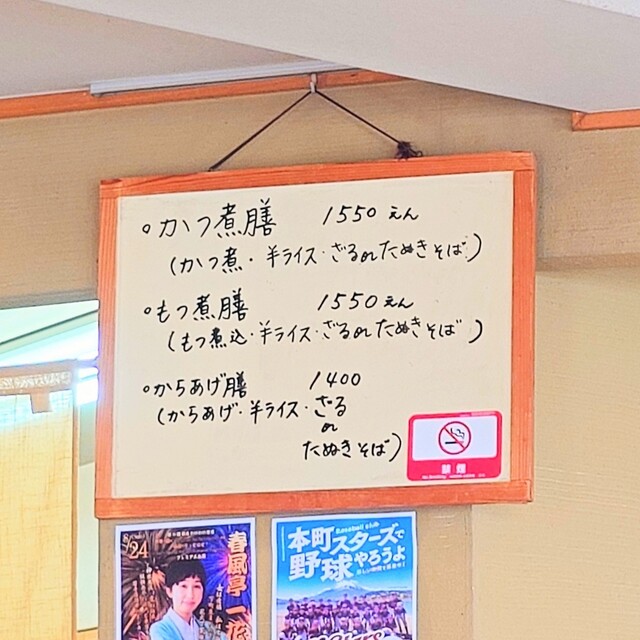 •かつ煮膳 1550えん
(かつ煮・半ライス・ざるorたぬきそば)
•もつ煮膳 1550えん
(もつ煮込・半ライス・ざるorたぬきそば)
•からあげ膳 1400
(からあげ・半ライス・ざる
or
たぬきそば)
禁煙
8/24
春風亭一花
Baseball club
本町スターズで
野球やろうよ